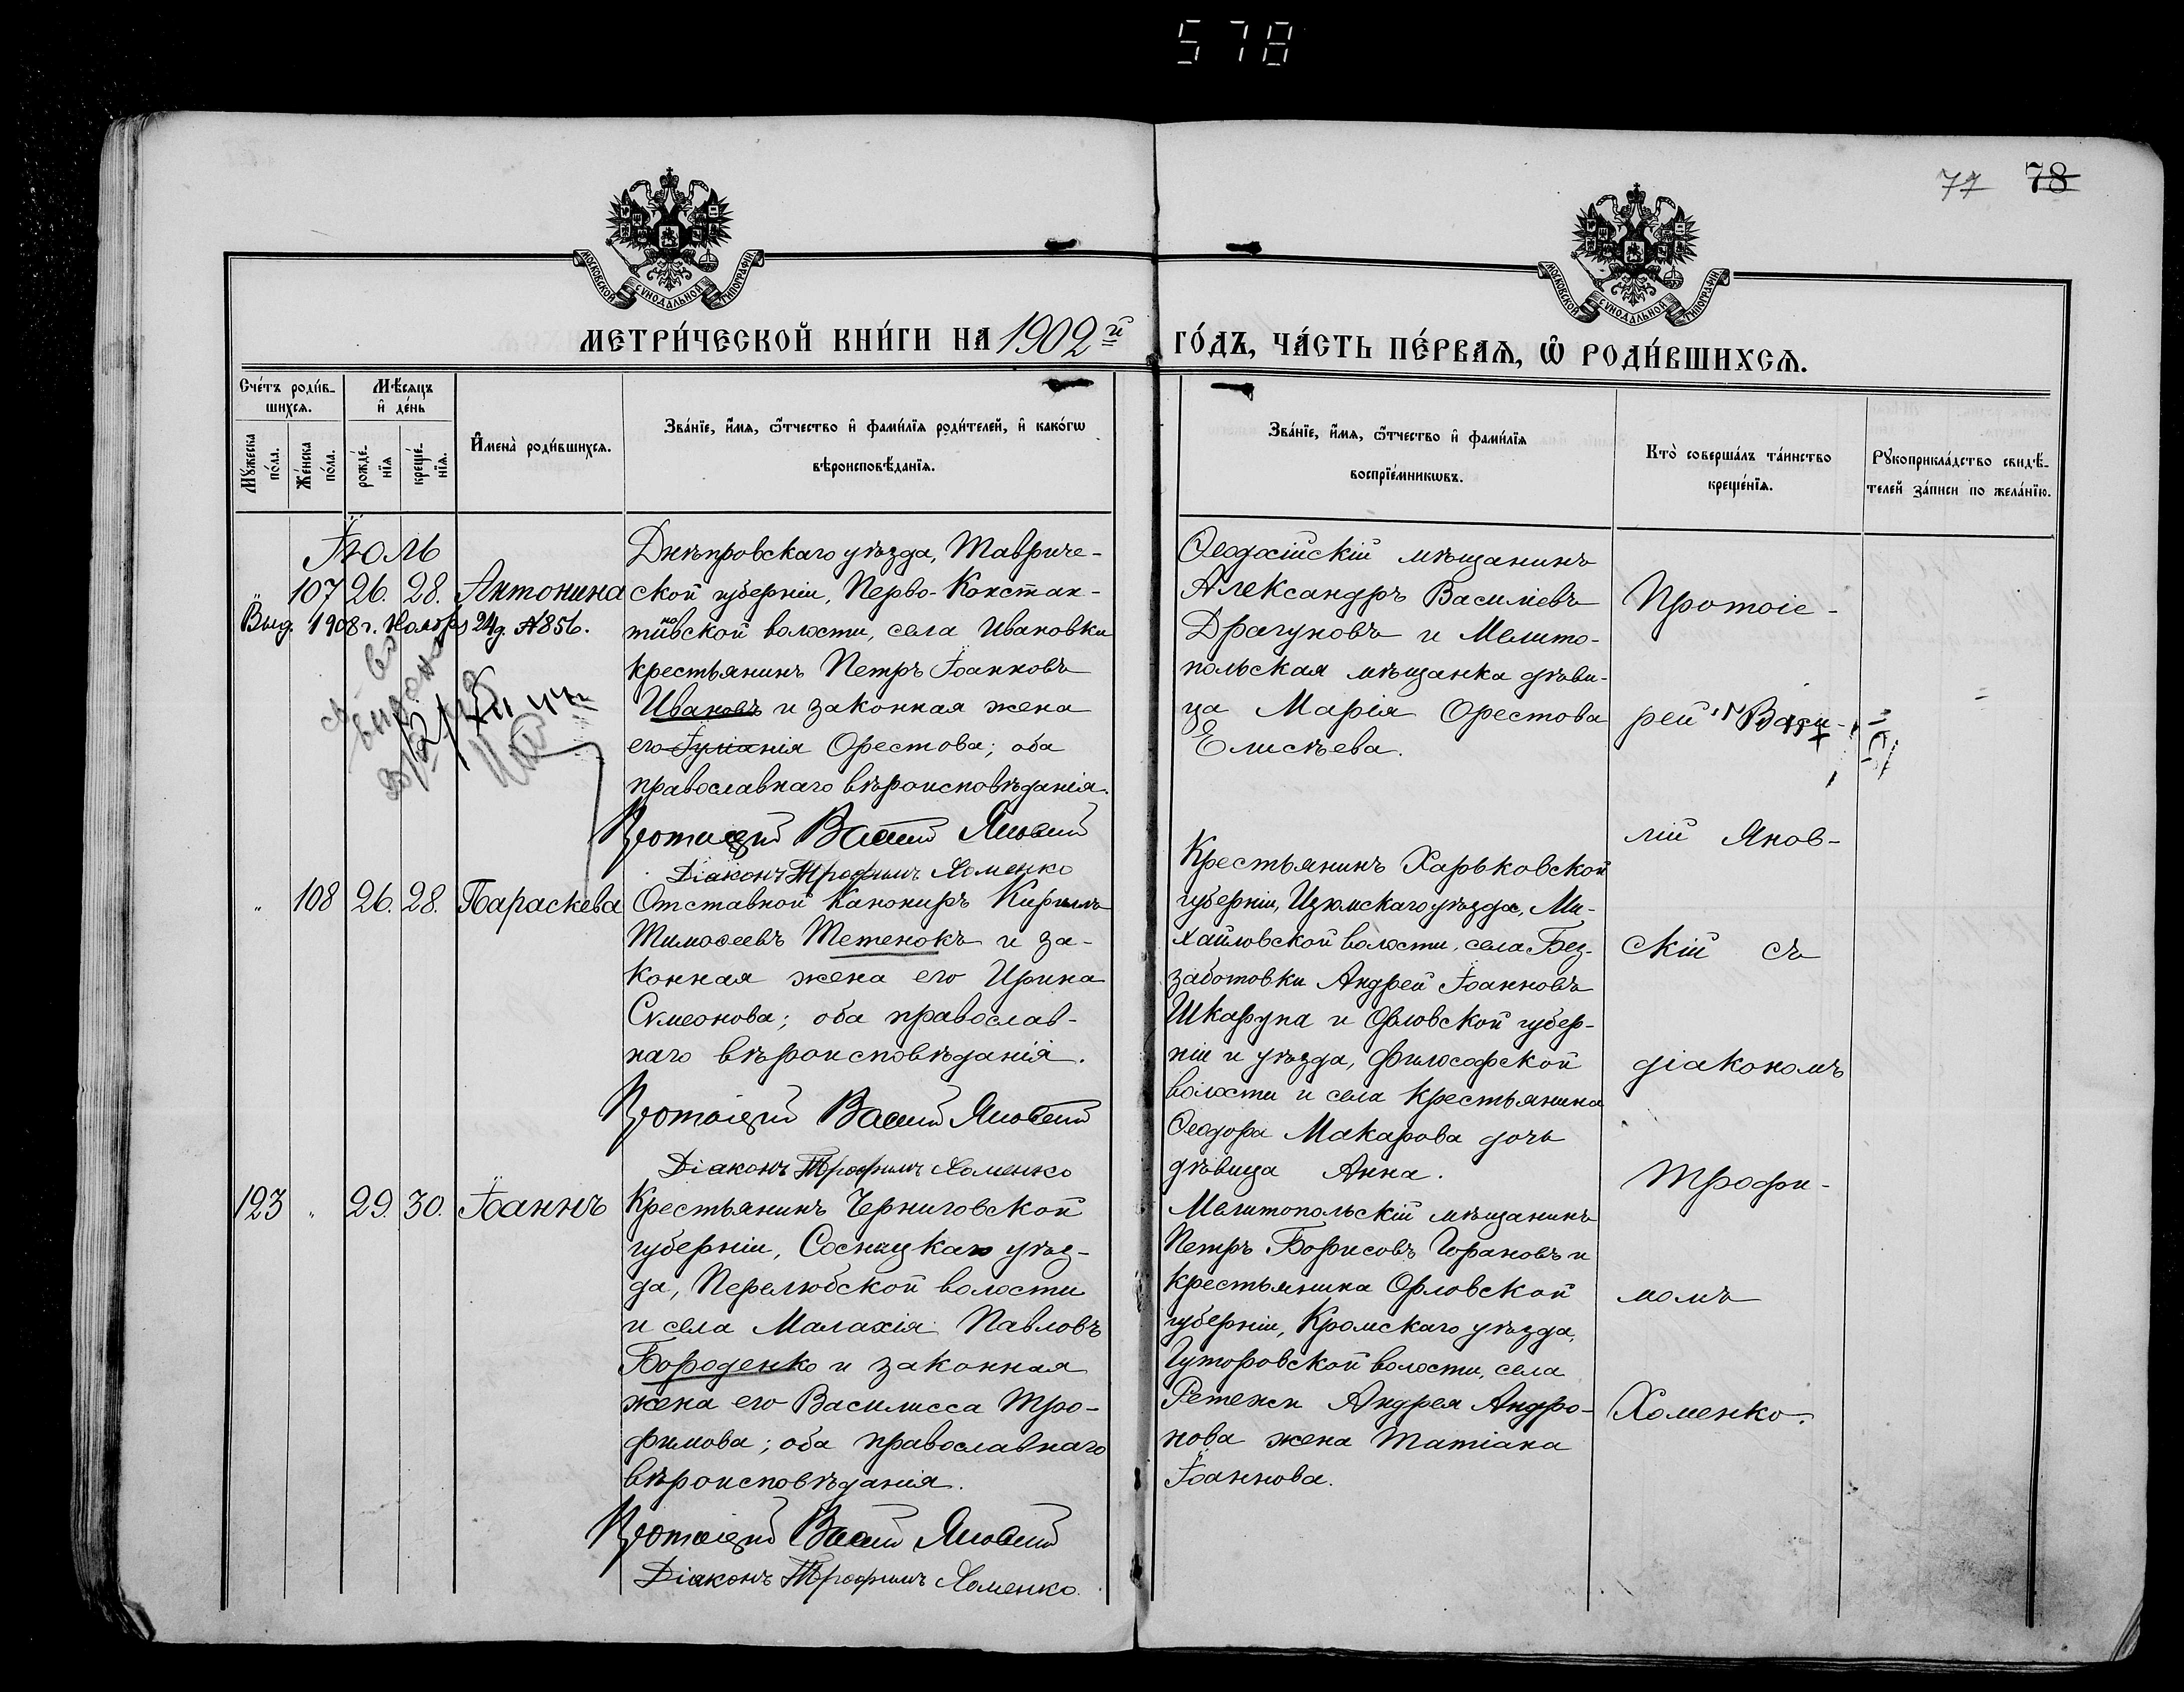 578
77 78
МОСКОВСКОЙ СУНОДАЛЬНОЙ ТИПОГРАФІИ
МОСКОВСКОЙ СУНОДАЛЬНОЙ ТИПОГРАФІИ
МЕТРИ́ЧЕСКОЙ КНИ́ГИ НА 1902й ГО́ДЪ, ЧА́СТЬ ПЕ́РВАѦ, Ѡ҆ РОДИ́ВШИХСѦ.
Сче́тъ роди́в-
шихсѧ.
Мѣ́сѧцъ
и҆ де́нь
Мꙋ́жеска
по́ла.
Же́нска
по́ла.
рожде́-
нїѧ
креще́-
нїѧ.
И҆мена̀ роди́вшихсѧ.
Зва́нїе, и҆́мѧ, ѻ҆́тчество и҆ фами́лїѧ роди́телей, и҆ како́гѡ
вѣроисповѣ́данїѧ.
Зва́нїе, и҆́мѧ, ѻ҆́тчество и҆ фами́лїѧ
воспрїе́мникѡвъ.
Кто̀ соверша́лъ та́инство
креще́нїѧ.
Рꙋкоприкла́дство свидѣ́-
телей за́писи по жела́нїю.
Іюль
107 26. 28. Антонина
Выд. 1908 г. Ноября 24 д. №856.
Днѣпровскаго уѣзда, Тавриче-
ской губерніи, Перво-Констан-
тиновской волости, села Ивановки
крестьянинъ Петръ Іоанновъ
Ивановъ и законная жена
его Іуліанія Орестова; оба
православнаго вѣроисповѣданія.
Протоіерей Василій Яновскій
Діаконъ Трофимъ Хоменко
Ѳеодосійскій мѣщанинъ
Александръ Василіевъ
Драгуновъ и Мелито-
польская мѣщанка дѣви-
ца Марія Орестова
Елисѣева.
" 108 26. 28. Параскева
Отставной Канониръ Кириллъ
Тимоѳеевъ Тетенокъ и за-
конная жена его Ирина
Сѵмеонова; оба православ-
наго вѣроисповѣданія.
Протоіерей Василій Яновскій
Діаконъ Трофимъ Хоменко
Крестьянинъ Харьковской
губерніи, Изюмскаго уѣзда, Ми-
хайловской волости, села Без-
заботовки Андрей Іоанновъ
Шкарупа и Орловской губер-
ніи и уѣзда, Философской
волости и села крестьянина
Ѳеодора Макарова дочь
дѣвица Анна.
123 " 29. 30. Іоаннъ
Крестьянинъ Черниговской
губерніи, Сосницкаго уѣз-
да, Перелюбской волости
и села Малахія Павловъ
Бороденко и законная
жена его Василисса Тро-
фимова; оба православнаго
вѣроисповѣданія.
Протоіерей Василій Яновскій
Діаконъ Трофимъ Хоменко.
Мелитопольскій мѣщанинъ
Петръ Борисовъ Горановъ и
крестьянина Орловской
губерніи, Кромскаго уѣзда,
Гуторовской волости, села
Ретежи Андрея Андро-
нова жена Татіана
Іоаннова.
Протоіе-
рей Васи-
лій Янов-
скій съ
діакономъ
Трофи-
момъ
Хоменко.